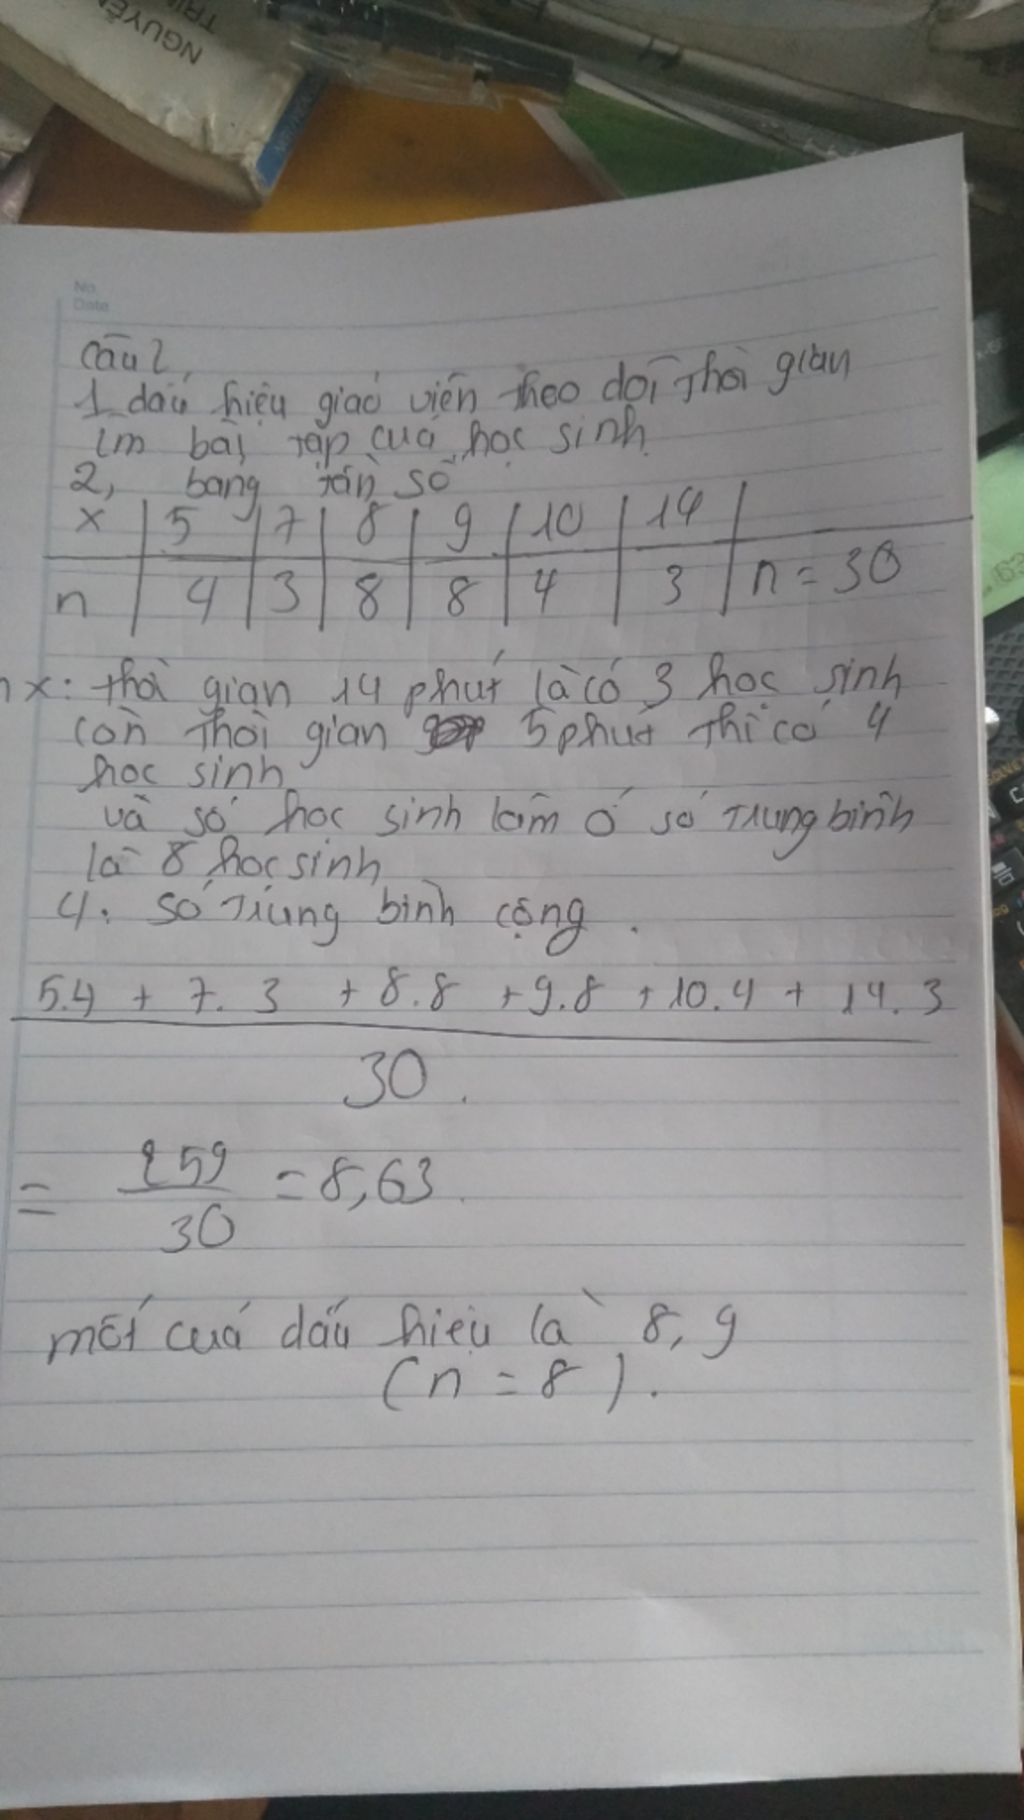 NGUYỄN
No.
Date
Câu 2,
1 dấu hiệu giáo viên theo dõi thời gian
lm bài tập của học sinh.
2, bảng tần số
x | 5 | 7 | 8 | 9 | 10 | 14 |
n | 4 | 3 | 8 | 8 | 4 | 3 | n = 30
nx: thời gian 14 phút là có 3 học sinh
còn thời gian 5 phút thì có 4
học sinh
và số học sinh làm ở số trung bình
là 8 học sinh
4. số trung bình cộng.
5.4 + 7.3 + 8.8 + 9.8 + 10.4 + 14.3
30.
= 259 = 8,63.
30
mốt của dấu hiệu là 8, 9
(n = 8).